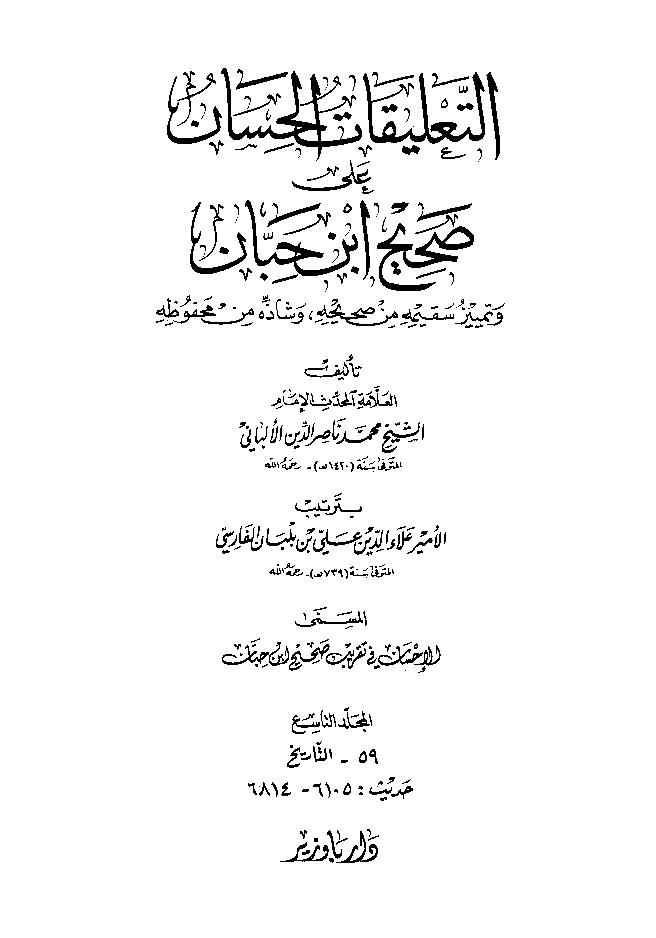 التَّعْلِيقَاتُ الحِسَانُ
عَلَى
صَحِيحِ ابْنِ حِبَّانَ
وَتَمْيِيزُ سَقِيمِهِ مِنْ صَحِيحِهِ، وَشَاذِّهِ مِنْ مَحْفُوظِهِ
تأليف
العلَّامَةِ المحدِّثِ الإمَام
الشيخ محمَّد ناصر الدين الألباني
المتوفى سَنَة (١٤٢٠هـ) - رحمهُ الله
بترتيب
الأمير علاء الدِّين عَلي بن بلبان الفارسي
المتوفى سَنَة (٧٣٩هـ) - رحمهُ الله
المسَمَّى
الإحسَان في تقريب صَحِيح ابن حبَّان
المجلّد التاسِع
٥٩ - التَّاريخ
حَديث : ٦١٠٥ - ٦٨١٤
دار باوزير